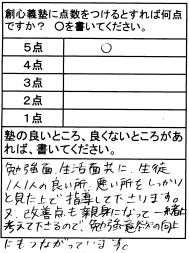 創心義塾に点数をつけるとすれば何点
ですか? ○を書いてください。
5点 ○
4点
3点
2点
1点
塾の良いところ、良くないところがあ
れば、書いてください。
勉強面、生活面共に、生徒
1人1人の良い所、悪い所をしっかり
と見た上で指導して下さります。
又、改善点も親身になって一緒に
考えて下さるので、勉強意欲の向上
にもつながっています。